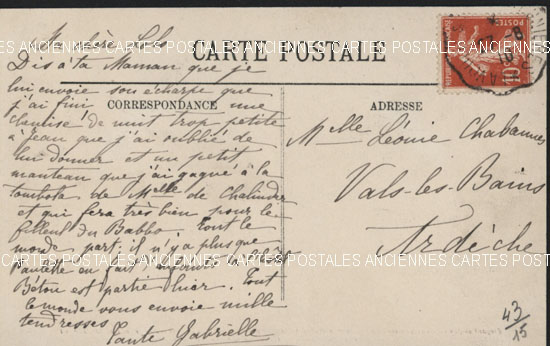 CARTE POSTALE
CORRESPONDANCE
ADRESSE
Dis à ta Maman que je
lui envoie son écharpe que
j'ai fini une
chemise de nuit trop petite
à Jean que j'ai oublié de
lui donner et un petit
manteau que j'ai gagné à la
tombola de Melle de
et qui fera très bien pour le
filleul du Babbo Tout le
monde part, il n'y a plus que
Paulette en fait,
est partie hier. Tout
le monde vous envoie mille
tendresses
Tante Gabrielle
Melle Léonie Chabannes
Vals-les-Bains
Ardèche
43/15
POSTES
10
CARTES POSTALES ANCIENNES CARTES POSTALES ANCIENNES CARTES POSTALES
CARTES POSTALES ANCIENNES CARTES POSTALES ANCIENNES CARTES POSTALES